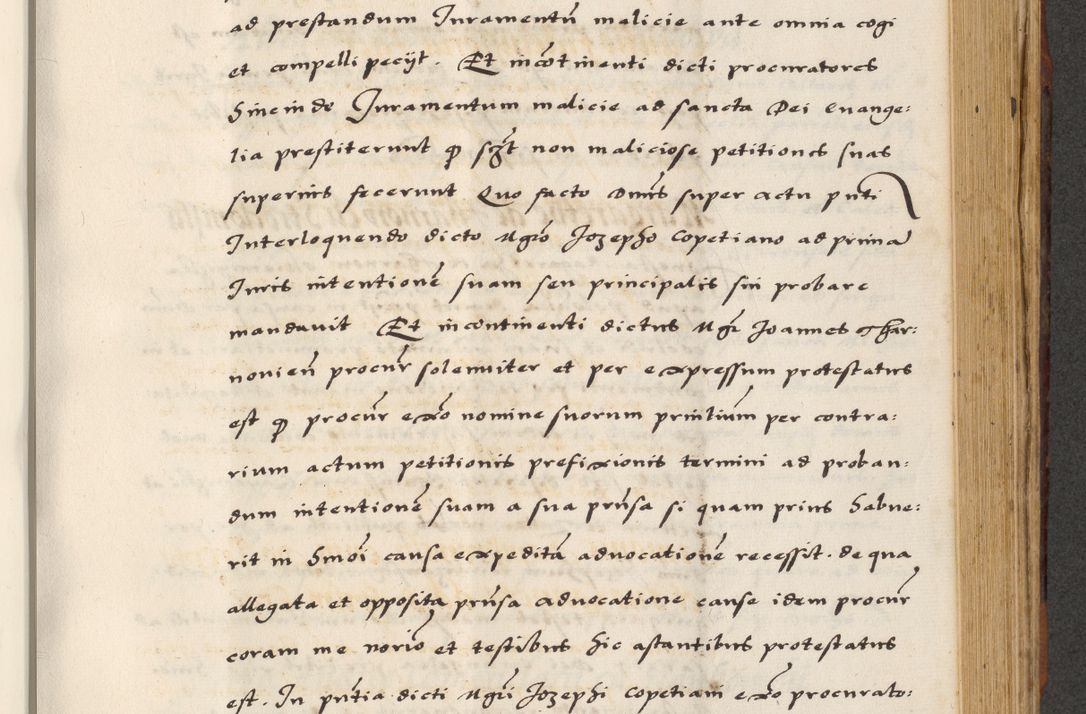 ad prestandum Iuramentū malicie ante omnia cogi
et compelli peciјt. Et incōtinenti dicti procuratores
hincinde Iuramentum malicie ad sancta Dei euange:
lia prestiterunt ꝙ sczt non maliciose petitiones suas
superius fecerunt Quo facto Dnus super actu pnti
Interloquendo dicto Mgro Jozepho Copetiano ad prima
Iuris intentionē suam seu principalis sui probare
mandauit Et incontinenti dictus Mgr Joannes Char:
nouien̄ procur̄ solenniter et per expressum protestatus
est ꝙ procur̄ exo nomine suorum prinlium per contra:
rium actum petitionis prefixionis termini ad proban:
dum intentionē suam a sua prn̄sa si quam prius habue:
rit in hmōi causa expeditā aduocationē recessit. de qua
allegata et opposita prn̄sa aduocatione cause idem procur̄
coram me norio et testibus hic astantibus protestatus
est. In pn̄tia dicti Mgri Jozephi Copetiani exo procurato: